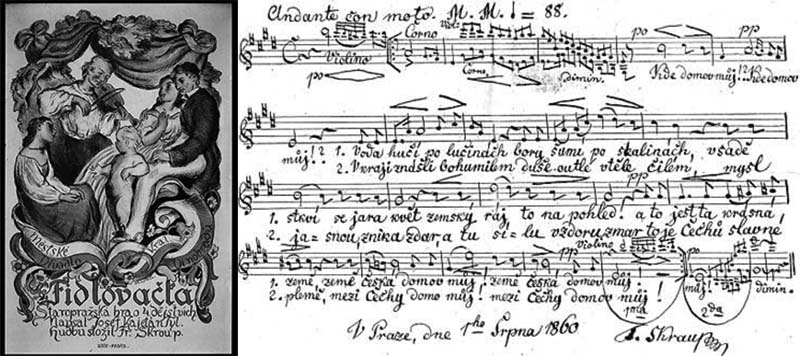 Městské
Fidlovačka
Staropražská hra o 4 dějstvích
Napsal Josef Kajetán Tyl
Hudbu složil Fr. Škroup
Andante con moto. M. M. ♩ = 88.
Violino
Corno
Viol:
Corno
dimin.
po
po
pp
Kde domov můj!? Kde domov
můj!? 1. Voda hučí po lučinách bory šumí po skalinách, v sadě
2. V kraji znášli bohumilém duše outlé v těle čilém, mysl
po
1. stkví se jara květ zemský ráj to na pohled! a to jest ta krásná,
2. ja=snou, znik a zdar, a tu sí=lu vzdoru zmar to je Čechů slavné
Violino
pp
po
1. země, země česká domov můj! země česká domov můj!
2. plémě, mezi Čechy domov můj! mezi Čechy domov můj!
1ma
můj!
2da
dimin.
V Praze, dne 1ho Srpna 1860